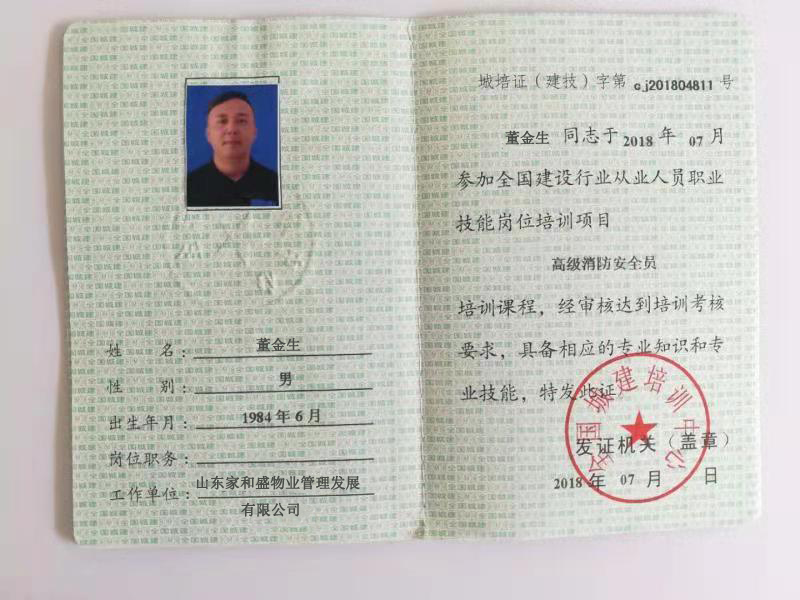 姓 名：董金生
性 别：男
出生年月：1984 年 6 月
岗位职务：
工作单位：山东家和盛物业管理发展
有限公司
城培证（建技）字第 cj201804811 号
董金生 同志于 2018 年 07 月
参加全国建设行业从业人员职业
技能岗位培训项目
高级消防安全员
培训课程，经审核达到培训考核
要求，具备相应的专业知识和专
业技能，特发此证
全国城建培训中心
发证机关（盖章）
2018 年 07 月 日